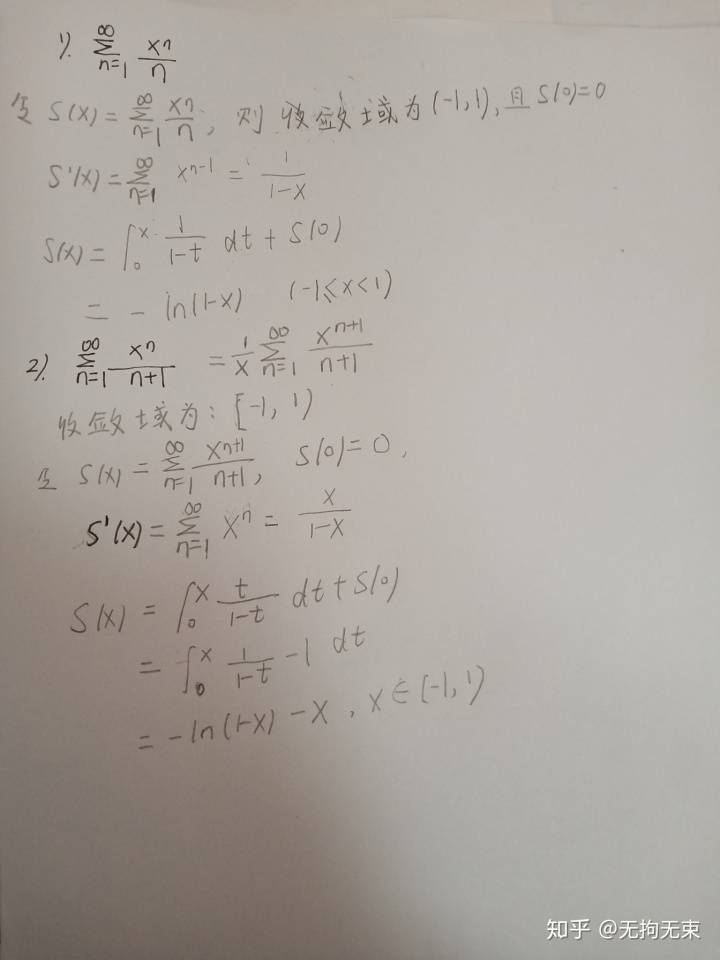 1). ∑_{n=1}^{∞} x^n/n
令 S(x) = ∑_{n=1}^{∞} x^n/n, 则 收敛域为 (-1, 1), 且 S(0)=0
S'(x) = ∑_{n=1}^{∞} x^{n-1} = 1/(1-x)
S(x) = ∫_0^x 1/(1-t) dt + S(0)
= - ln(1-x) (-1≤x<1)
2). ∑_{n=1}^{∞} x^n/(n+1) = 1/x ∑_{n=1}^{∞} x^{n+1}/(n+1)
收敛域为: [-1, 1)
令 S(x) = ∑_{n=1}^{∞} x^{n+1}/(n+1), S(0)=0,
S'(x) = ∑_{n=1}^{∞} x^n = x/(1-x)
S(x) = ∫_0^x t/(1-t) dt + S(0)
= ∫_0^x 1/(1-t) - 1 dt
= -ln(1-x) - x, x∈[-1, 1)
知乎 @无拘无束